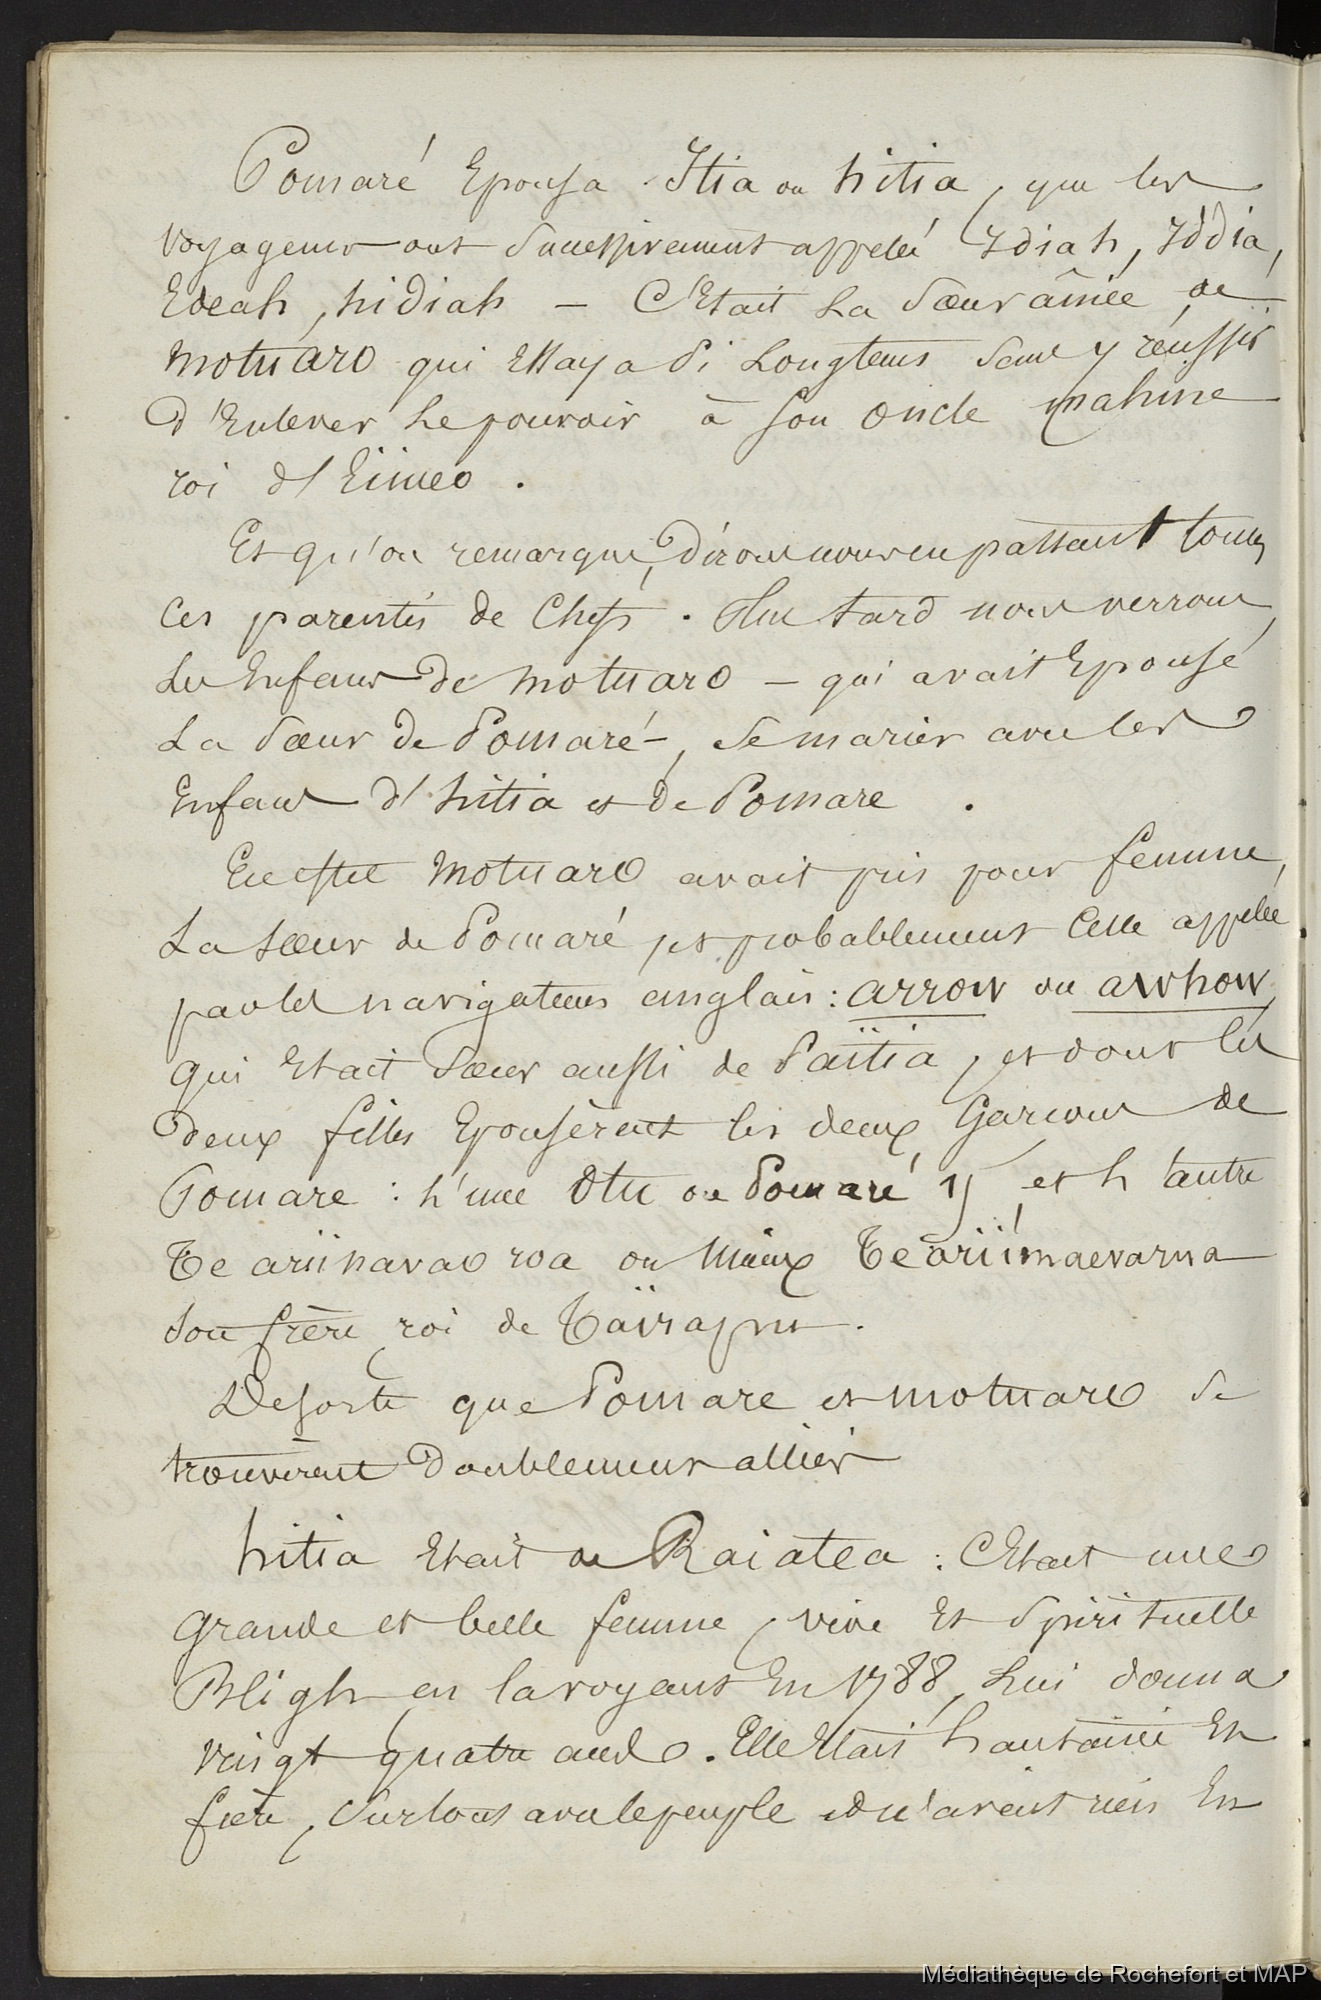 Pomaré Epousa Itia ou hitia, que les
voyageurs ont successivement appelée Idiah, Iddia,
Edeah, hidiah — C'Etait La Sœur aînée de
motuaro qui Essaya si Longtems sans y réussir
d'Enlever Le pouvoir à son oncle mahine
roi d'Eimeo.
Et qu'on remarque, dirons nous en passant toutes
Ces parentés de Chefs. Plus tard nous verrons
Les Enfans de motuaro — qui avait Epousé
La Sœur de Pomaré —, Se marier avec les
Enfans d'hitia et de Pomare.
En effet Motuaro avait pris pour femme,
La sœur de Pomaré, et probablement Celle appelée
par les navigateurs anglais : arrow ou awhow,
qui Etait Sœur aussi de Païtia, et dont les
deux filles Epousèrent les deux Garcons de
Pomare : L'une Otu ou Pomaré II, et L'autre
Te ariinavaoroa ou Mieux Te ariimaevarua
Son frère, roi de Taïrapu.
Desorte que Pomare et motuaro se
trouvèrent Doublement alliés
hitia Etait de Raiatea : C'Etait une
Grande et belle femme, vive Et Spirituelle
Bligh en la voyant En 1788, Lui donna
vingt quatre ans. Elle Etait hautaine Et
fière, Surtout avec le peuple et n'avait rien En
Médiathèque de Rochefort et MAP